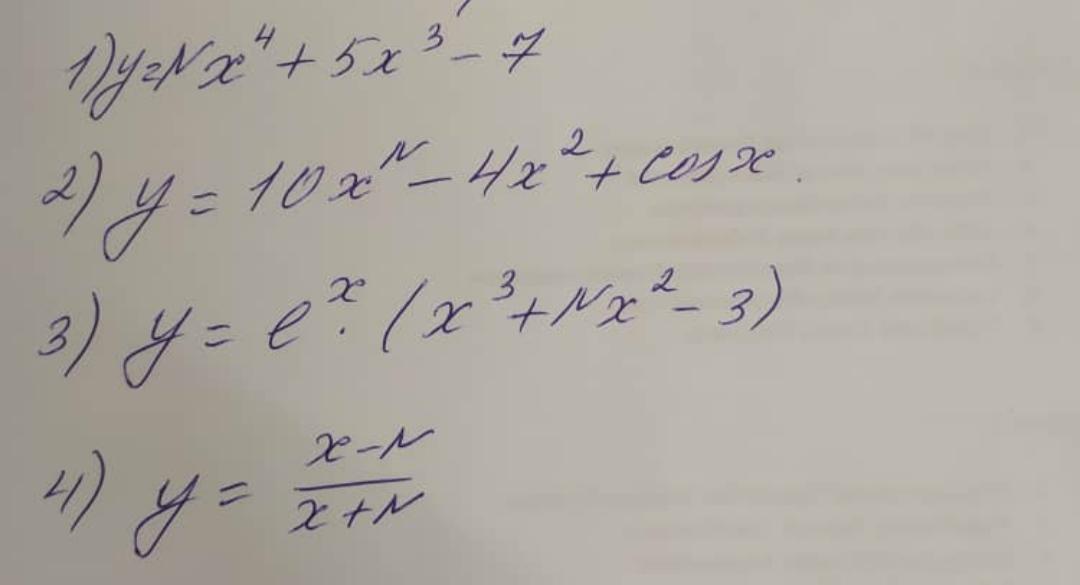 1) y=Nx⁴+5x³-7
2) y=10x^N-4x²+cosx.
3) y=e^x·(x³+Nx²-3)
4) y=(x-N)/(x+N)